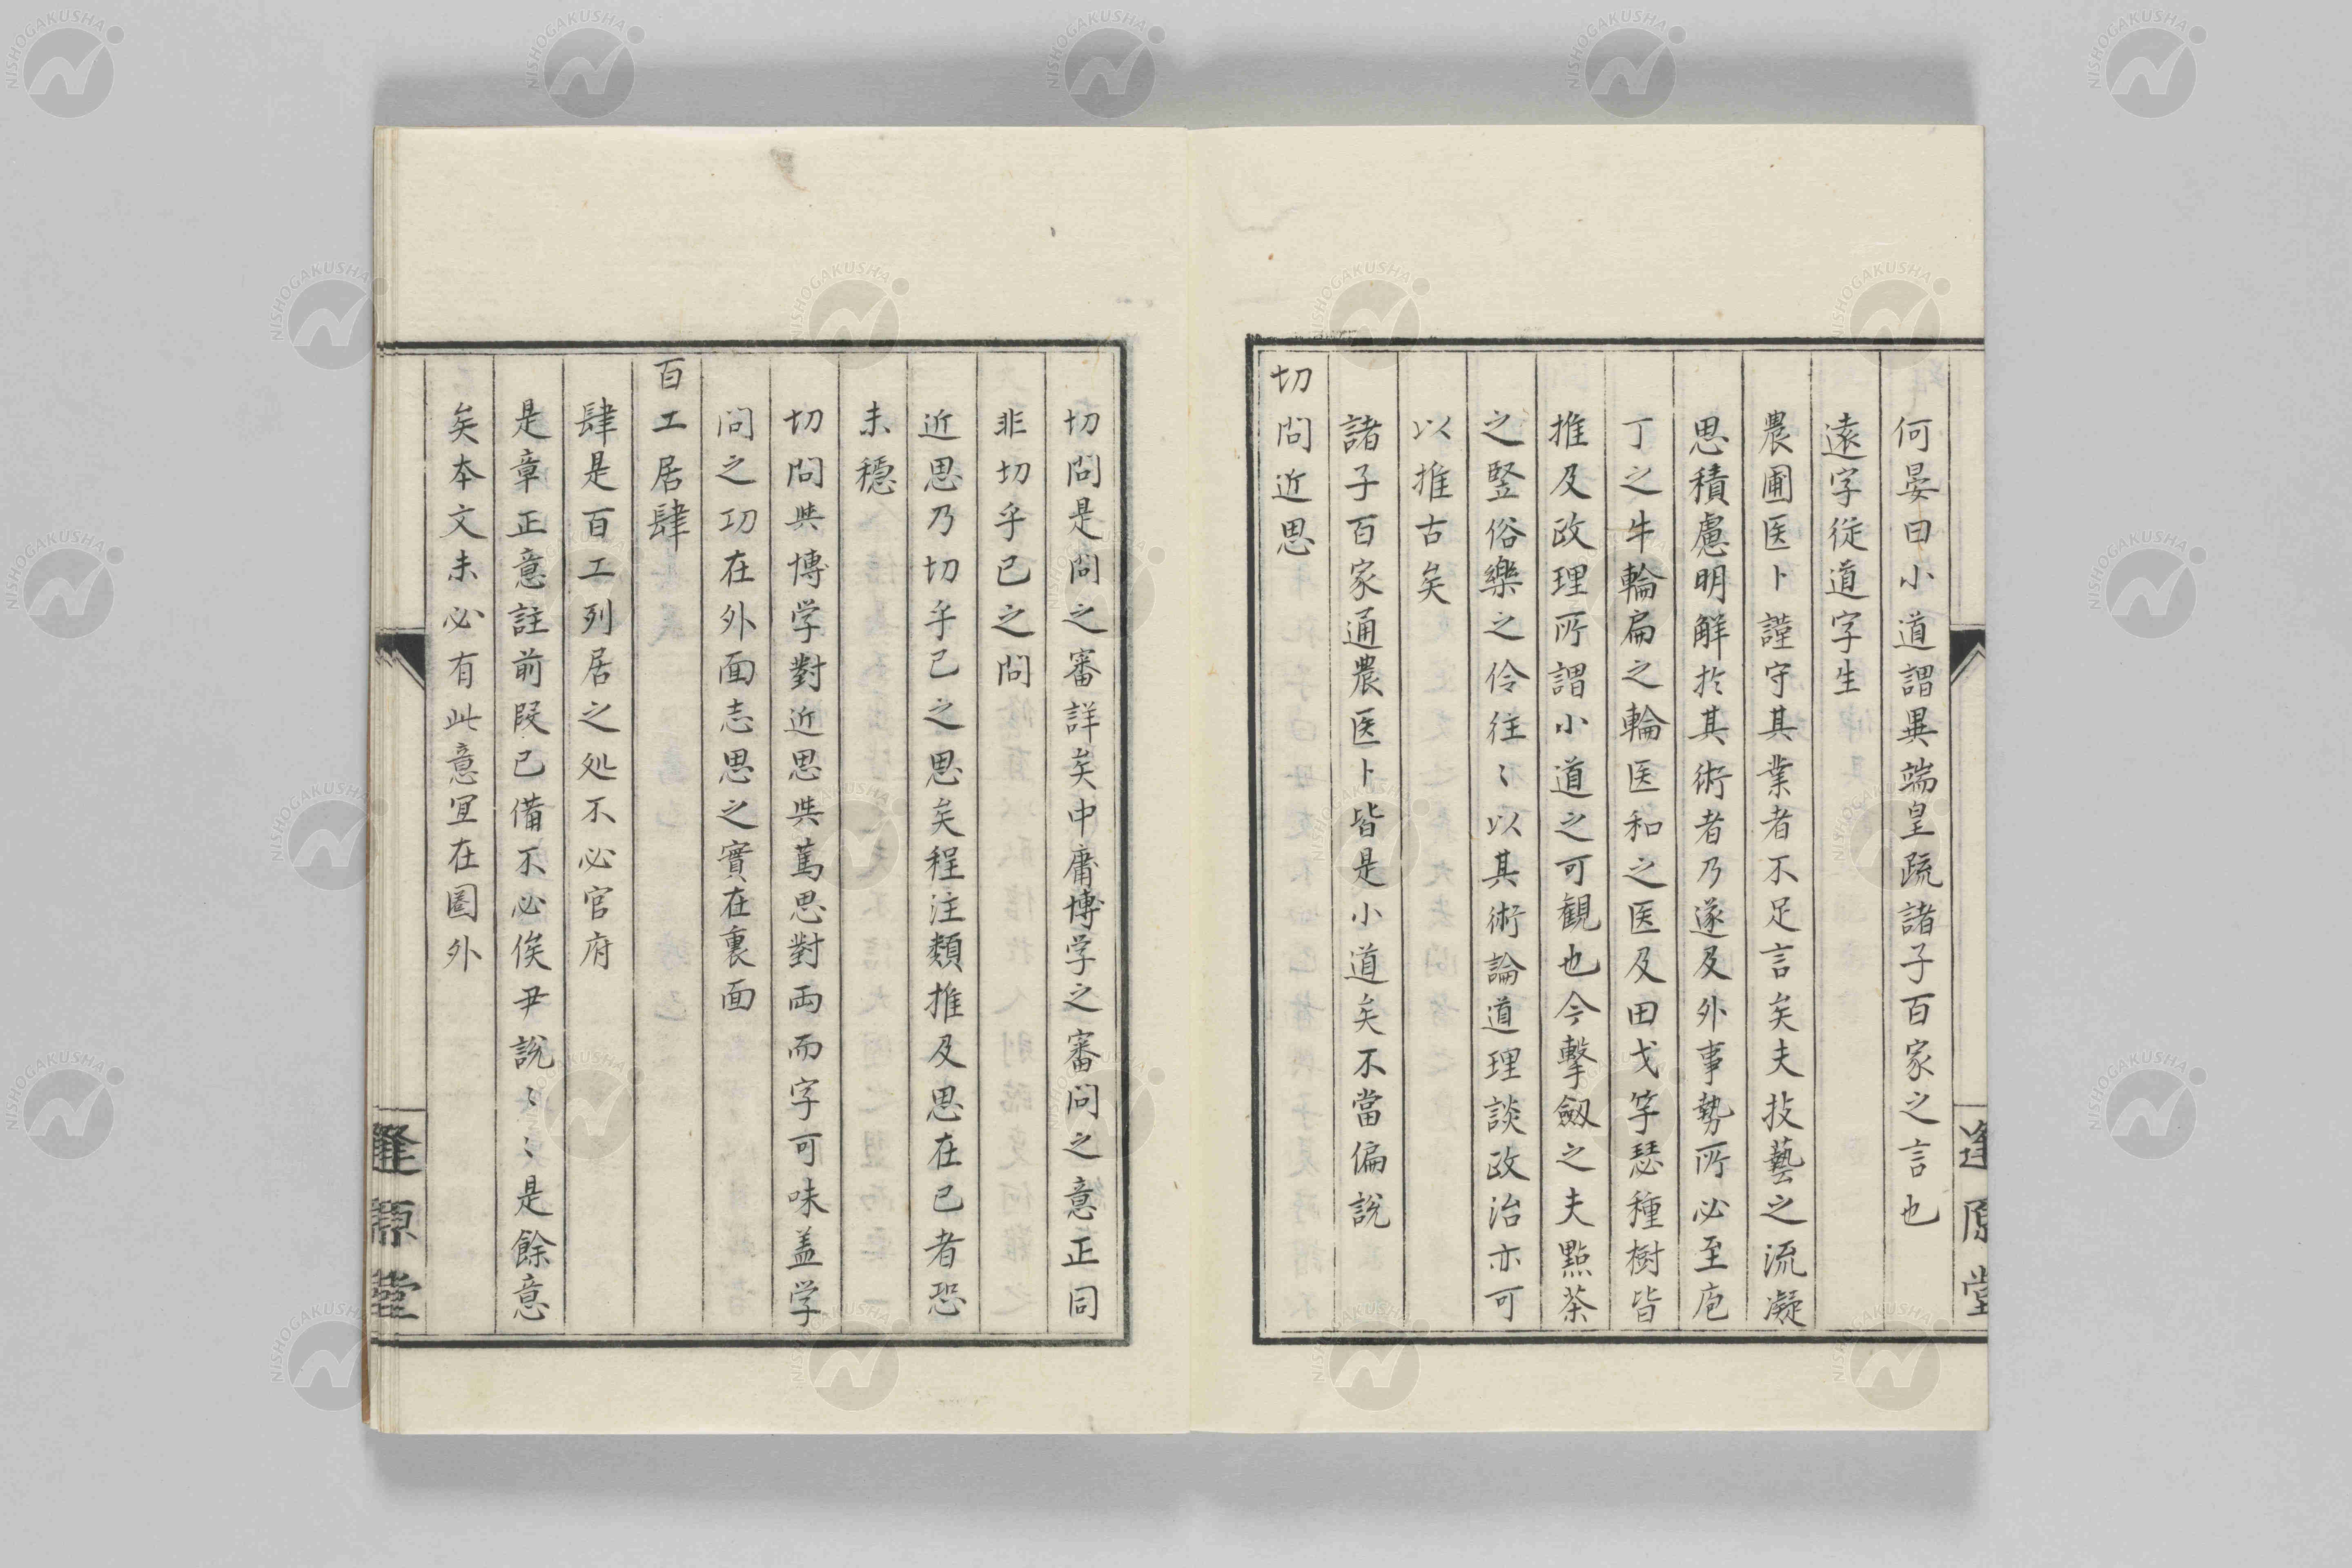 何晏曰小道謂異端皇疏諸子百家之言也
遠字従道字生
農圃医卜謹守其業者不足言矣夫技藝之流凝
思積慮明解於其術者乃遂及外事勢所必至庖
丁之牛輪扁之輪医和之医及田戈竽瑟種樹皆
推及政理所謂小道之可観也今撃劔之夫點茶
之豎俗樂之伶往〻以其術論道理談政治亦可
以推古矣
諸子百家通農医卜皆是小道矣不當偏說
切問近思
切問是問之審詳矣中庸博学之審問之意正同
非切乎己之問
近思乃切乎己之思矣程注類推及思在己者恐
未穏
切問與博学對近思與篤思對両而字可味盖学
問之功在外面志思之實在裏面
百工居肆
肆是百工列居之処不必官府
是章正意註前段已備不必俟尹說〻〻是餘意
矣本文未必有此意宜在圏外
逢原堂
逢原堂
NISHOGAKUSHA